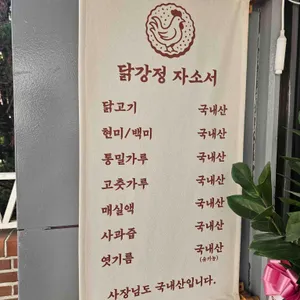 닭강정 자소서
닭고기 국내산
현미/백미 국내산
통밀가루 국내산
고춧가루 국내산
매실액 국내산
사과즙 국내산
엿기름 국내산
(유기농)
사장님도 국내산입니다.